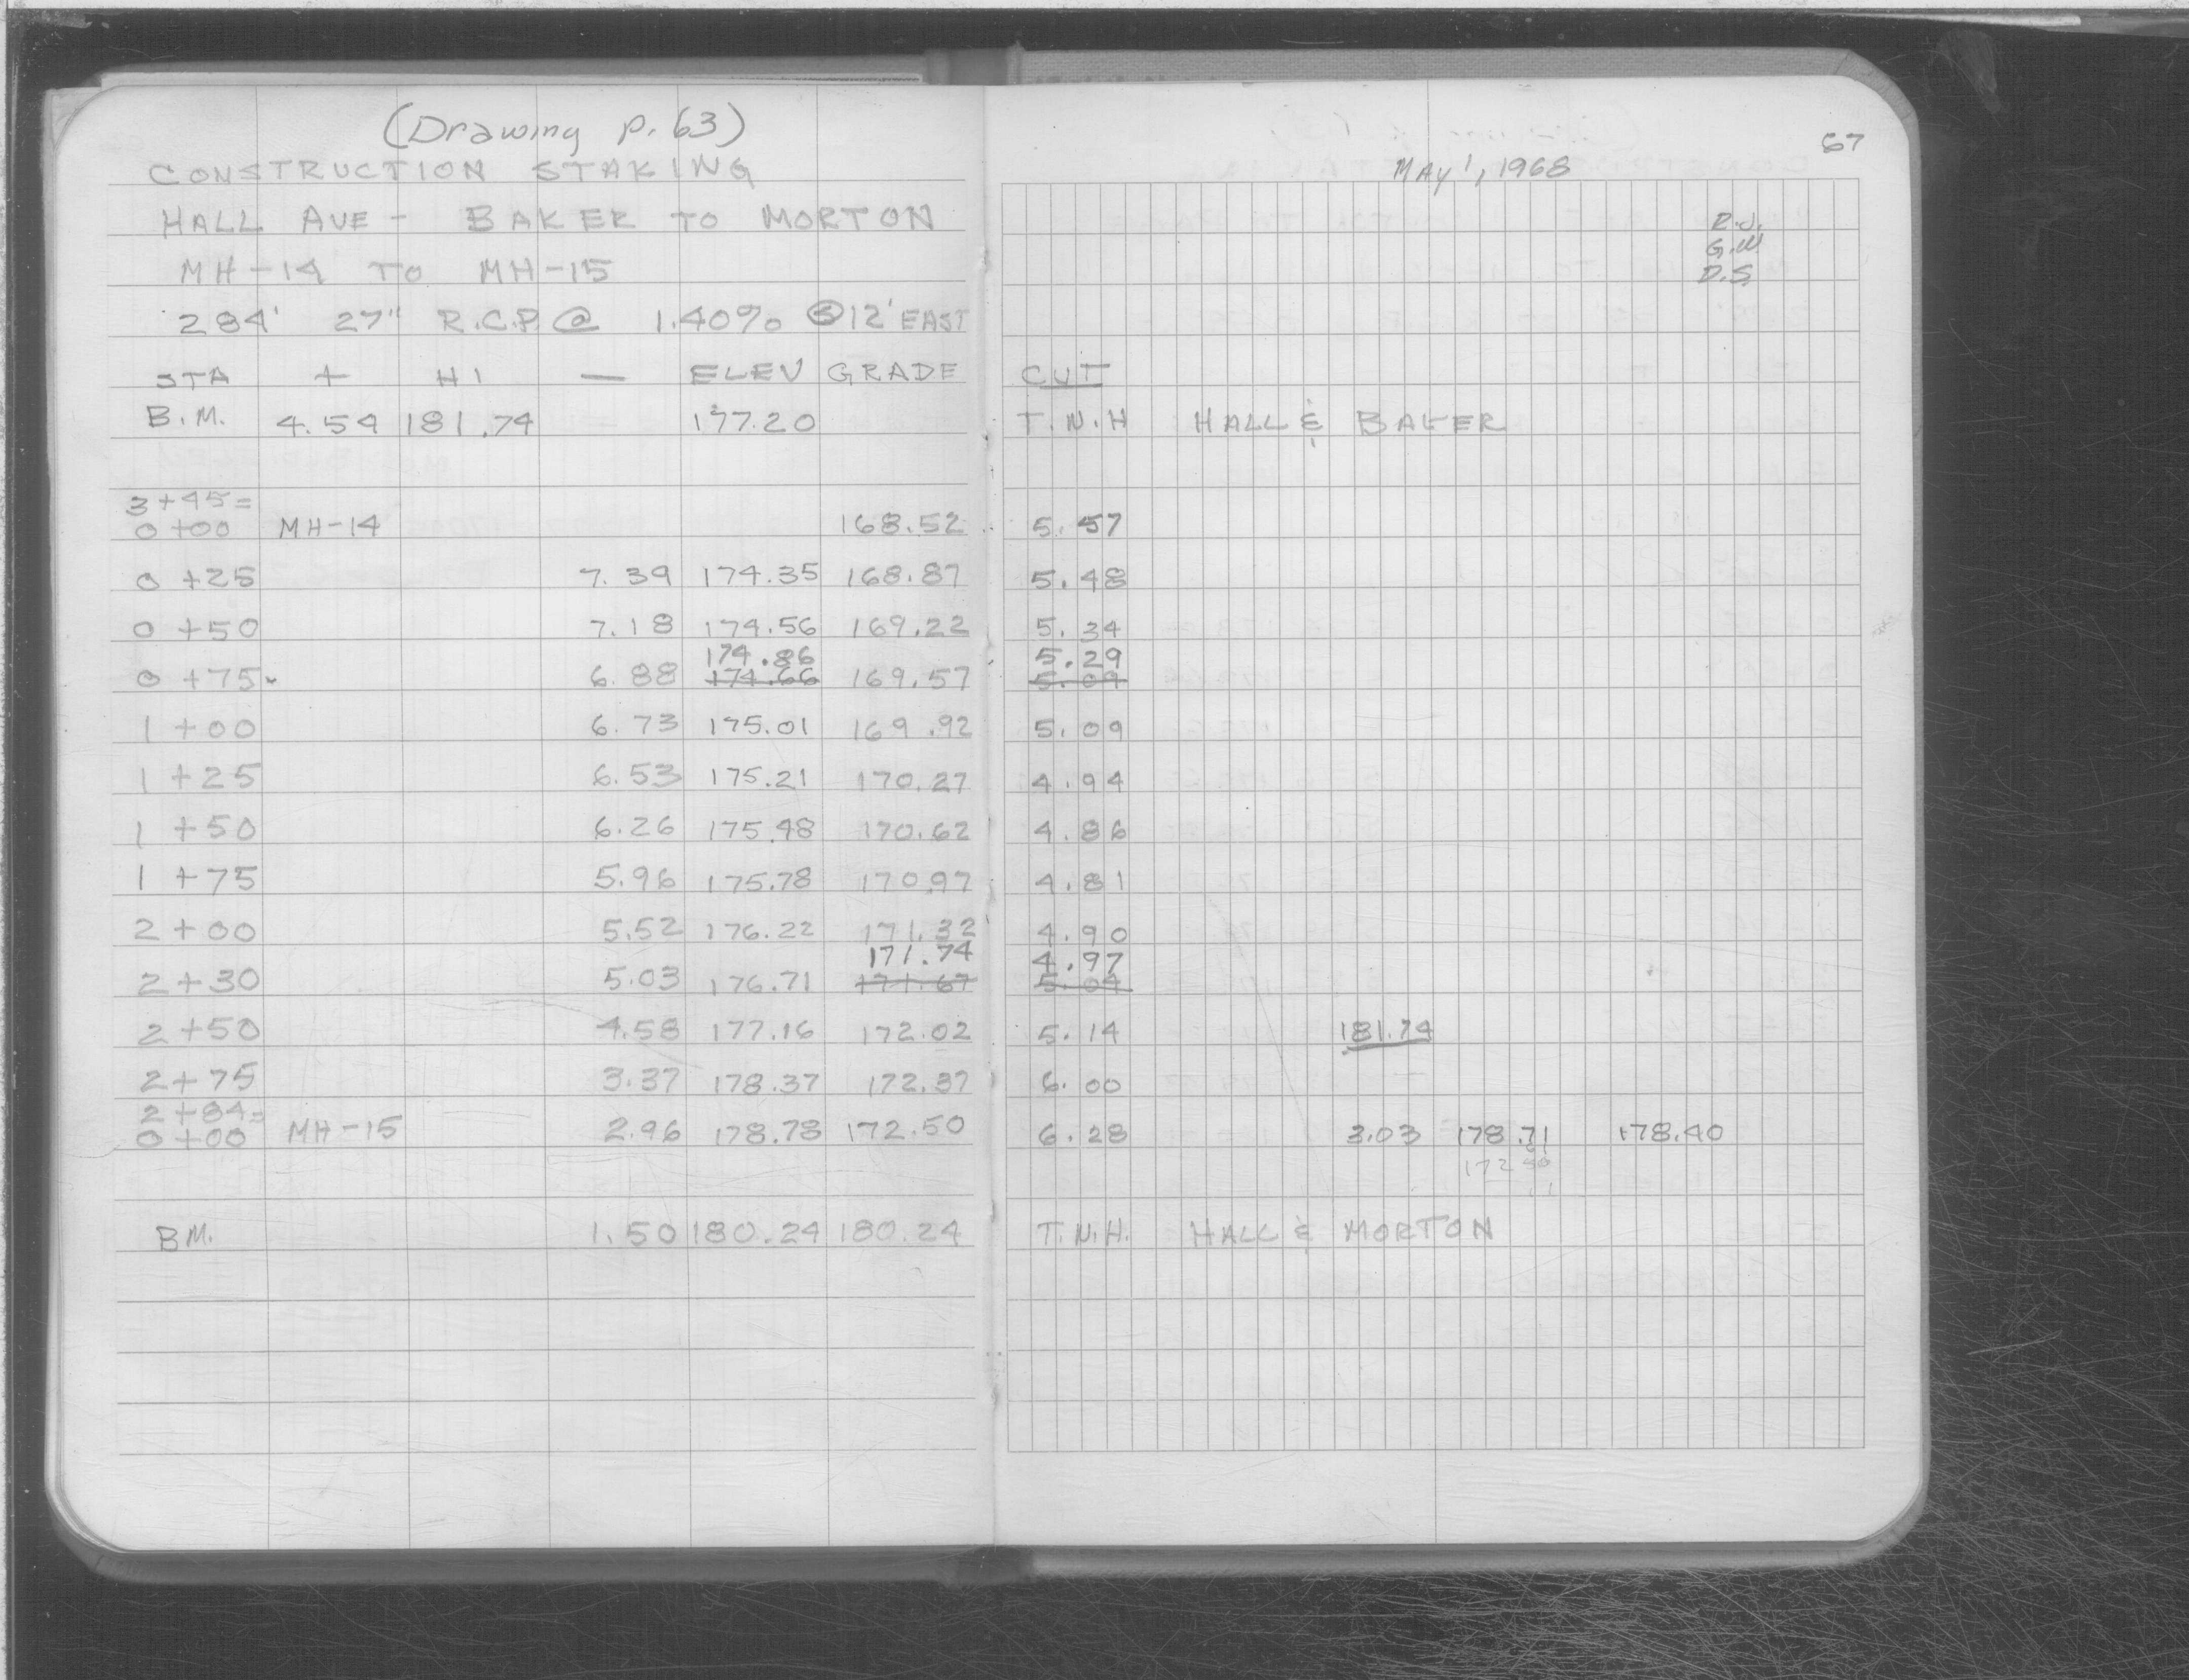 (Drawing p. 63)
CONSTRUCTION STAKING
HALL AVE - BAKER TO MORTON
MH-14 TO MH-15
284' 27" R.C.P. @ 1.40% 12' EAST
STA + HI — ELEV GRADE
B.M. 4.54 181.74 177.20
3+45=
0+00 MH-14 168.52
0+25 7.39 174.35 168.87
0+50 7.18 174.56 169.22
174.86
0+75 6.88 174.66 169.57
1+00 6.73 175.01 169.92
1+25 6.53 175.21 170.27
1+50 6.26 175.48 170.62
1+75 5.96 175.78 170.97
2+00 5.52 176.22 171.32
171.74
2+30 5.03 176.71 171.67
2+50 4.58 177.16 172.02
2+75 3.37 178.37 172.37
2+84=
0+00 MH-15 2.96 178.78 172.50
BM. 1.50 180.24 180.24
67
MAY 1, 1968
R.J.
G.W.
D.S.
CUT
T.N.H HALL & BAKER
5.57
5.48
5.34
5.29
5.09
5.09
4.94
4.86
4.81
4.90
4.97
5.04
5.14 181.74
6.00
6.28 3.03 178.71 178.40
172.50
T.N.H. HALL & MORTON